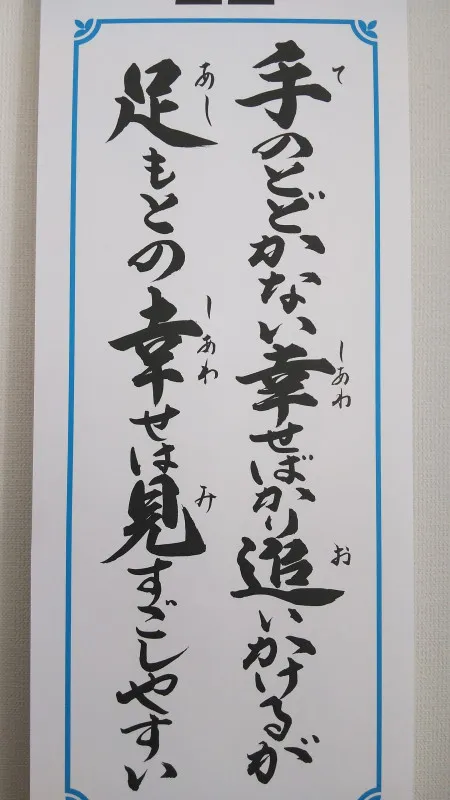 手のとどかない幸せばかり追いかけるが
足もとの幸せは見すごしやすい